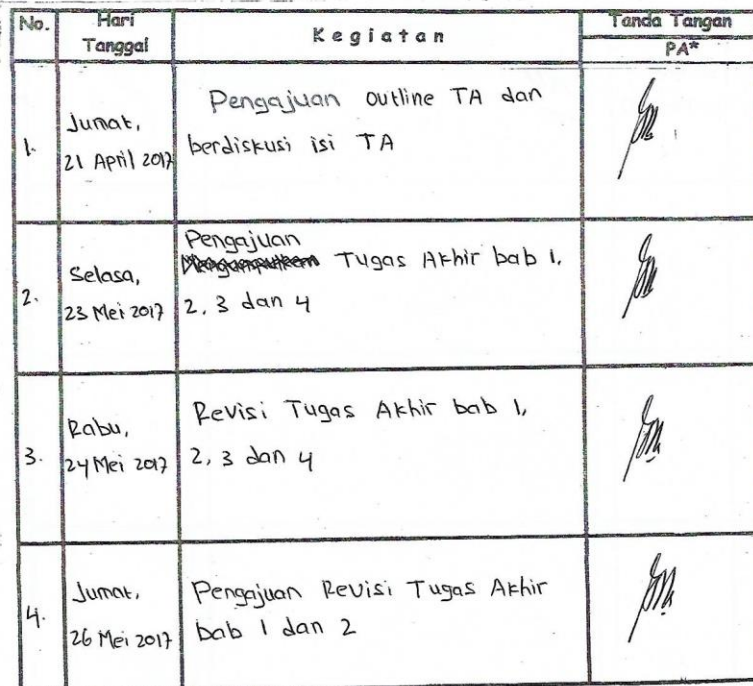 No. Hari Tanggal Kegiatan Tanda Tangan
PA*
1. Jumat, 21 April 2017 Pengajuan outline TA dan
berdiskusi isi TA
2. Selasa, 23 Mei 2017 Pengajuan Tugas Akhir bab 1,
2, 3 dan 4
3. Rabu, 24 Mei 2017 Revisi Tugas Akhir bab 1,
2, 3 dan 4
4. Jumat, 26 Mei 2017 Pengajuan Revisi Tugas Akhir
bab 1 dan 2